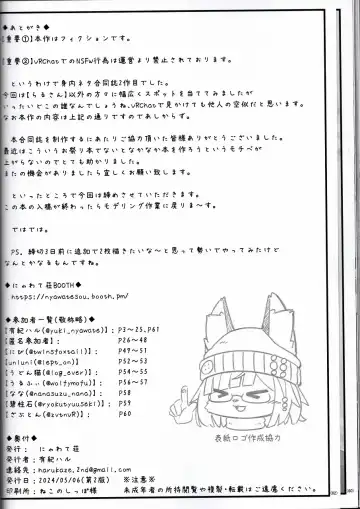 ◆あとがき◆
【重要①】本作はフィクションです。
【重要②】VRChatでのNSFW行為は運営より禁止されております。
というわけで身内ネタ合同誌2作目でした。
今回は【らるさん】以外の方々に幅広くスポットを当ててみましたが
いったいどこの誰なんでしょうね、VRChatで見かけても他人の空似だと思います。
なお本作の内容は上記の通りですのであしからず。
本合同誌を制作するにあたりご協力頂いた皆様ありがとうございました。
最近はこういうお祭り本でないとなかなか本を作ろうというモチベが
上がらないのでとても助かりました。
またの機会がありましたら宜しくお願い致します。
といったところで今回は締めさせていただきます。
この本の入稿が終わったらモデリング作業に戻りま～す。
ではでは。
PS. 締切3日前に追加で2枚描きたいな～と思って勢いでやってみたけど
なんとかなるもんですね。
◆にゃわて荘BOOTH◆
https://nyawatesou.booth.pm/
◆参加者一覧(敬称略)◆
【有紀ハル(@yuki_nyawate)】： P3～25、P61
【匿名参加者】： P26～48
【にび(@twinsfoxtail)】： P49～51
【uniuni(@lept_on)】： P52～53
【うどん猫(@log_ever)】： P54～55
【うるふぃ(@wolfymofu)】： P56～57
【なな(@nanasuzu_nana)】： P58
【碧柱石(@ryokutyuuseki)】： P59
【ざぶとん(@zvtnuR)】： P60
表紙ロゴ作成協力
◆奥付◆
発行： にゃわて荘
発行者：有紀ハル
連絡先：harukaze.2nd@gmail.com
発行日：2024/05/06(第2版) ※注意※
印刷所：ねこのしっぽ様 未成年者の所持閲覧や複製・転載はご遠慮ください。